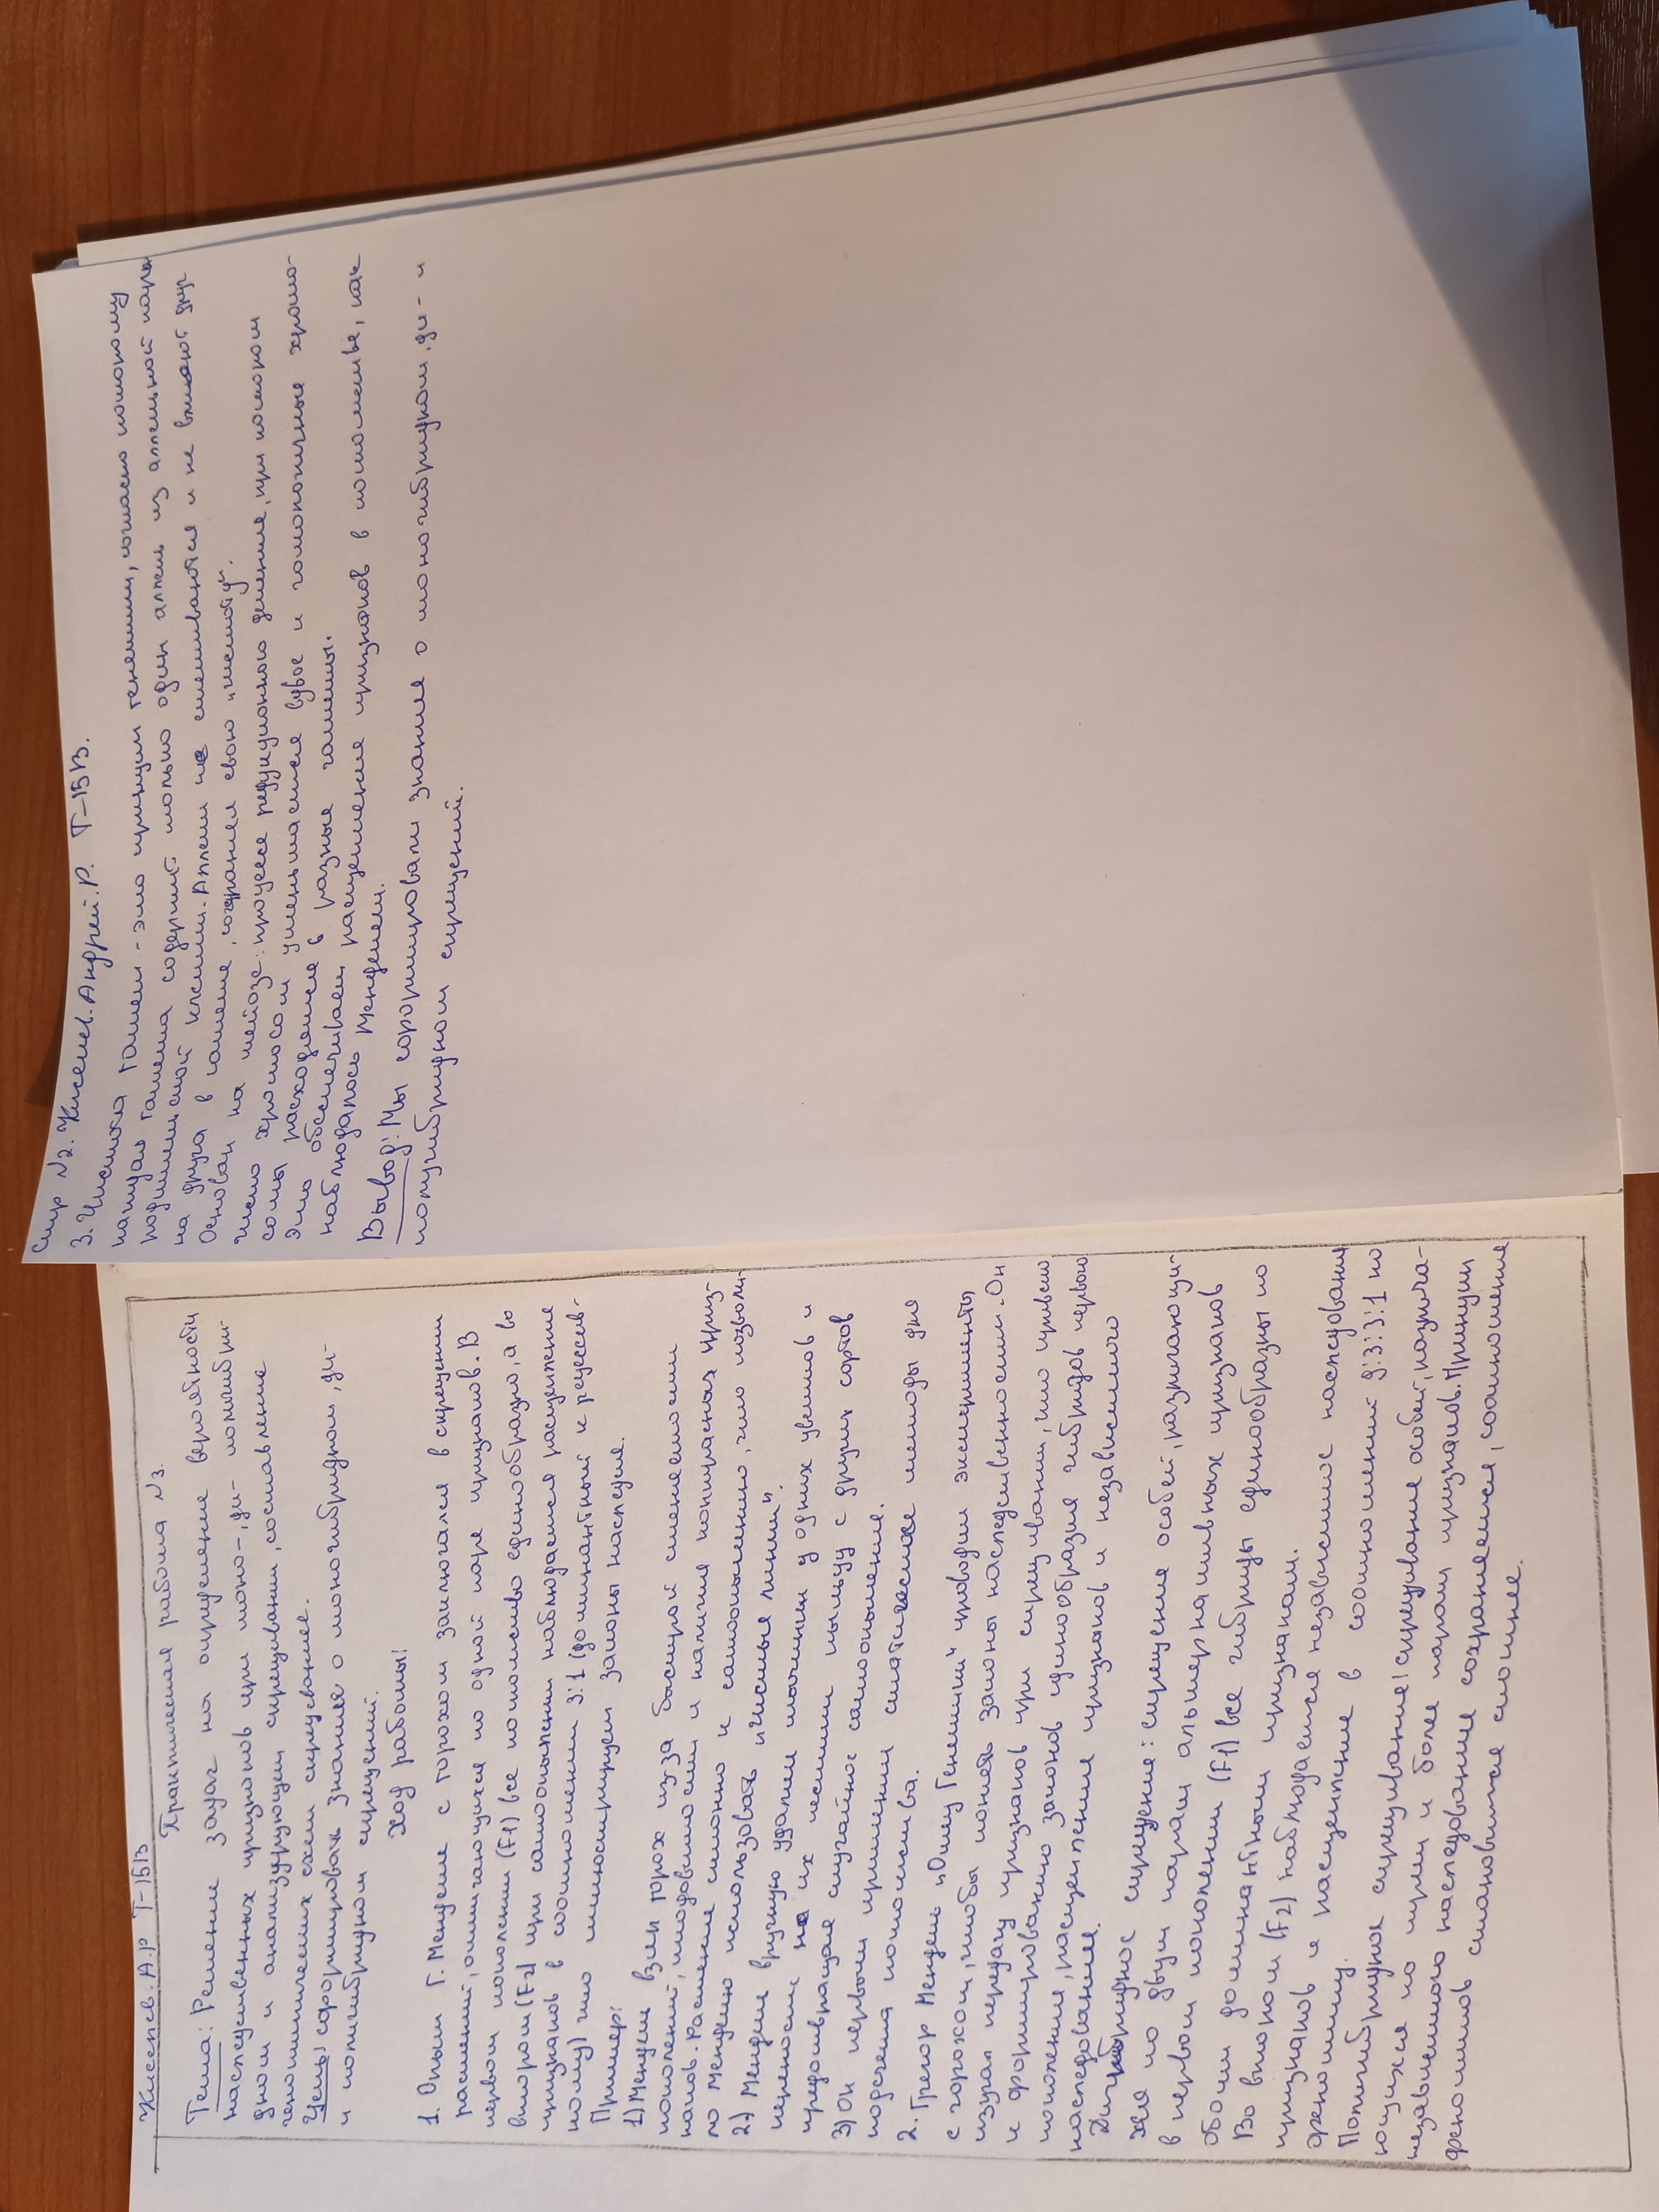 Киселев. А.Р Т-15В
Практическая работа №3.
Тема: Решение задач на определение вероятности
наследственных признаков при моно-, ди- полигибри-
дном и анализирующем скрещивании, составление
генотипических схем скрещивание.
Цель: сформировать знание о моногибридном, ди-
и полигибридном скрещений.
Ход работы!
1. Опыт Г. Менделе с горохом заключался в скрещении
растений, отличающихся по одной паре признаков. В
первом поколении (F1) все потомство единообразно, а во
втором (F2) при самоопылении наблюдается расщепление
признаков в соотношении 3:1 (доминантный к рецессив-
ному) что иллюстрирует законы наследия.
Пример:
1) Мендель взял горох из за быстрой сменяемости
поколений, плодовитости и наличия контрастных приз-
наков. Растение склонно к самоопылению, что позволи-
ло Менделю использовать "чистые линии".
2) Мендель вручную удалял тычинки у одних цветков и
переносил на их пестики пыльцу с других сортов
предотвращая случайное самоопыление.
3) Он первым применил статистические методы для
подсчета потомства.
2. Грегор Мендель "Отец Генетики" проводил эксперименты
с горохом, чтобы понять законы наследственности. Он
изучал передачу признаков при скрещивании, что привело
к формированию законов единообразия гибридов первого
поколения, расщепления признаков и независимого
наследования.
Дигибридное скрещение: скрещение особей, различающи-
хся по двум парам альтернативных признаков
в первом поколении (F1) все гибриды единообразны по
обоим доминантным признакам.
Во втором (F2) наблюдается независимое наследование
признаков и расщепление в соотношений 9:3:3:1 по
фенотипу.
Полигибридное скрещивание: скрещивание особей, различа-
ющихся по трем и более парам признаков. Принцип
независимого наследование сохраняется, соотношение
фенотипов становится сложнее.
Стр №2. Киселев. Андрей. Р. Т-15В.
3. Чистота гамет - это принцип генетики, согласно которому
каждая гамета содержит только один аллель из аллельной пары
родительской клетки. Аллели не смешиваются и не влияют друг
на друга в гамете, сохраняя свою "чистоту".
Основан на мейозе: процессе редукционного деление, при котором
число хромосом уменьшается вдвое и гомологичные хромо-
сомы расходятся в разные гаметы.
Это обеспечивает расщепление признаков в потомстве, как
наблюдалось Менделем.
Вывод: Мы сформировали знание о моногибридном, ди- и
полугибридном скрещений.